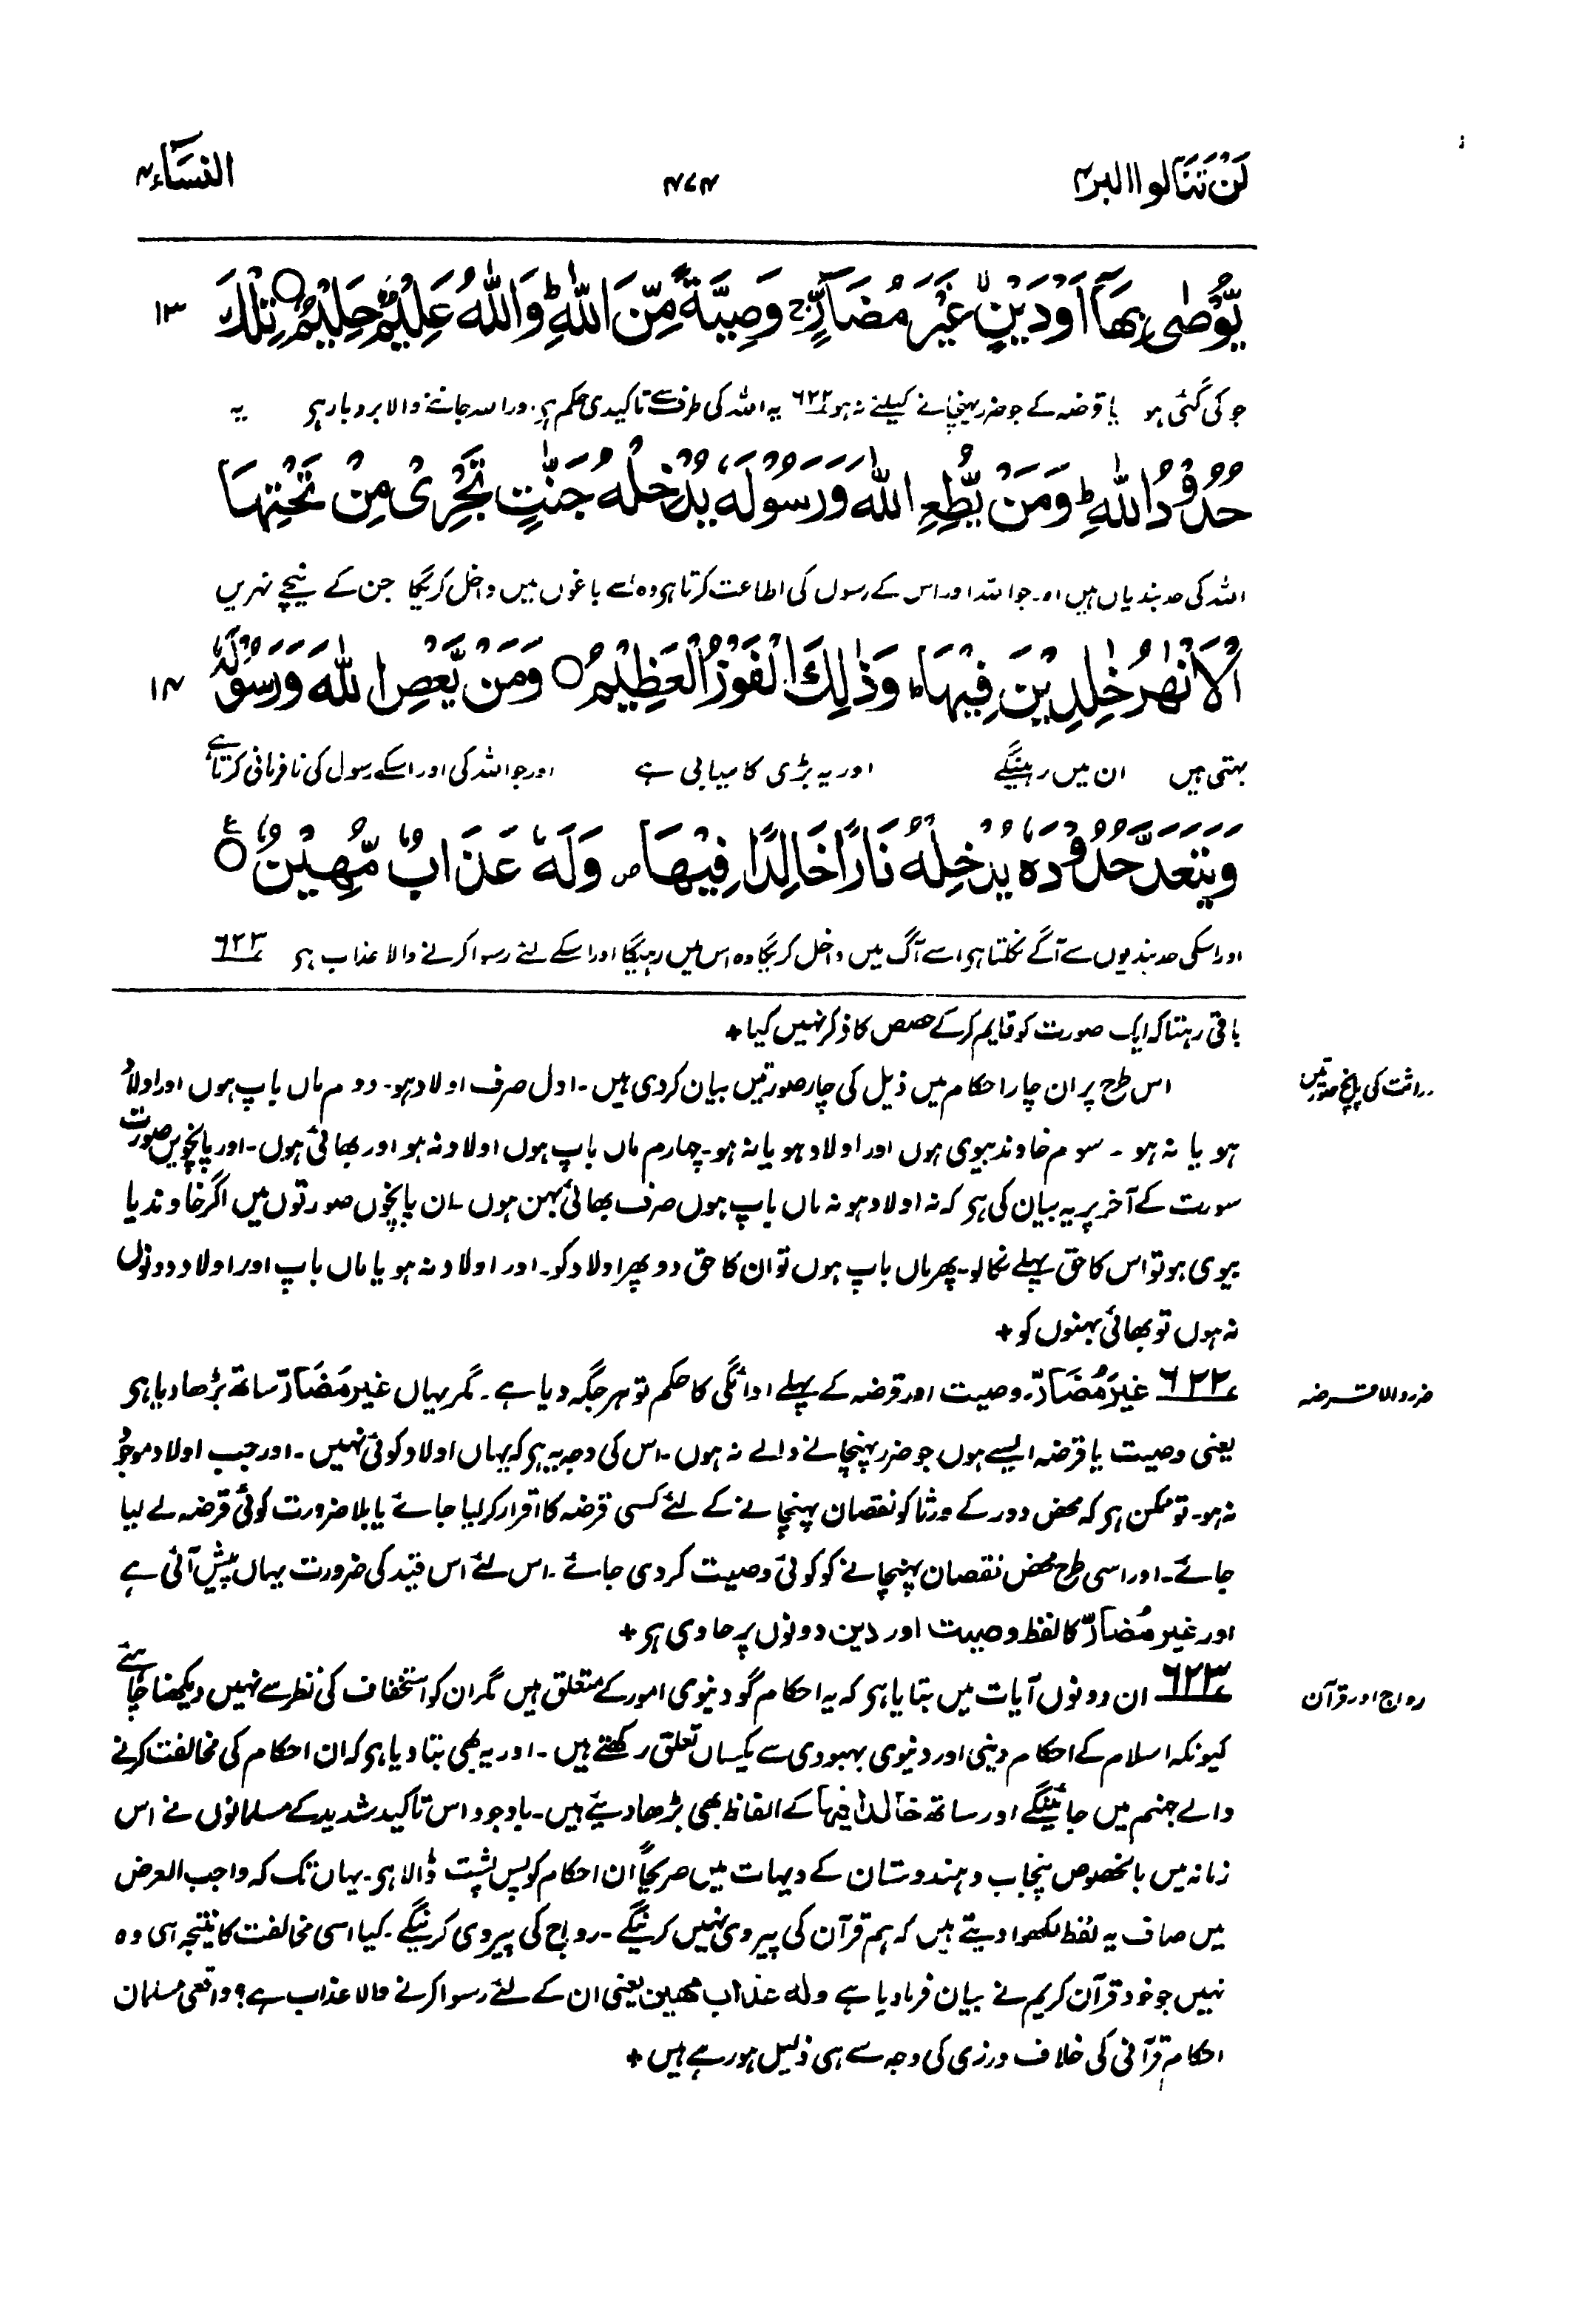 لَنْ تَنَالُوا الْبِرَّ ۴
۴۷۴
النِّسَآء ۴
يُّوْصٰى بِهَآ اَوْ دَيْنٍ غَيْرَ مُضَآرٍّ ۚ وَصِيَّةً مِّنَ اللّٰهِ ؕ وَاللّٰهُ عَلِيْمٌ حَلِيْمٌ ○ تِلْكَ ۱۳
جو کی گئی ہو یا قرضہ کے جو ضرر پہنچانے کیلئے نہ ہو ۶۲۲ یہ اللہ کی طرف سے تاکیدی حکم ہی اور اللہ جاننے والا بردبار ہی یہ
حُدُوْدُ اللّٰهِ ؕ وَمَنْ يُّطِعِ اللّٰهَ وَرَسُوْلَهٗ يُدْخِلْهُ جَنّٰتٍ تَجْرِىْ مِنْ تَحْتِهَا
اللہ کی حد بندیاں ہیں اور جو اللہ اور اس کے رسول کی اطاعت کرتا ہی وہ اُسے باغوں میں داخل کریگا جن کے نیچے نہریں
الْاَنْهٰرُ خٰلِدِيْنَ فِيْهَا ؕ وَذٰلِكَ الْفَوْزُ الْعَظِيْمُ ○ وَمَنْ يَّعْصِ اللّٰهَ وَرَسُوْلَهٗ ۱۴
بہتی ہیں ان میں رہینگے اور یہ بڑی کامیابی ہے اور جو اللہ کی اور اسکے رسول کی نافرمانی کرتا ہے
وَيَتَعَدَّ حُدُوْدَهٗ يُدْخِلْهُ نَارًا خَالِدًا فِيْهَا ص وَلَهٗ عَذَابٌ مُّهِيْنٌ ○ ع
اور اسکی حد بندیوں سے آگے نکلتا ہی اسے آگ میں داخل کریگا وہ اس میں رہیگا اور اسکے لئے رسوا کرنے والا عذاب ہی ۶۲۳
باقی رہتا کہ ایک صورت کو قایم کرکے حصص کا ذکر نہیں کیا +
وراثت کی پانچ صورتیں
اس طرح پر ان چار احکام میں ذیل کی چار صورتیں بیان کردی ہیں۔ اول صرف اولاد ہو۔ دوم ماں باپ ہوں اور اولاد
ہو یا نہ ہو ۔ سوم خاوند بیوی ہوں اور اولاد ہو یا نہ ہو۔ چہارم ماں باپ ہوں اولاد نہ ہو اور بھائی ہوں۔ اور پانچویں صورت
سورت کے آخر پر یہ بیان کی ہی کہ نہ اولاد ہو نہ ماں باپ ہوں صرف بھائی بہن ہوں۔ ان پانچوں صورتوں میں اگر خاوند یا
بیوی ہو تو اس کا حق پہلے نکالو۔ پھر ماں باپ ہوں تو ان کا حق دو پھر اولاد کو۔ اور اولاد نہ ہو یا ماں باپ اور اولاد دونوں
نہ ہوں تو بھائی بہنوں کو +
ضرر والا قرضہ
۶۲۲ غَيْرَ مُضَآرّ۔ وصیت اور قرضہ کے پہلے ادائگی کا حکم تو ہر جگہ دیا ہے۔ مگر یہاں غیر مُضَآرّ ساتھ بڑھا دیا ہی
یعنی وصیت یا قرضہ ایسے ہوں جو ضرر پہنچانے والے نہ ہوں۔ اس کی وجہ یہ ہی کہ یہاں اولاد کوئی نہیں۔ اور جب اولاد موجود
نہ ہو۔ تو ممکن ہی کہ محض دور کے ورثا کو نقصان پہنچانے کے لئے کسی قرضہ کا اقرار کرلیا جائے یا بلا ضرورت کوئی قرضہ لے لیا
جائے۔ اور اسی طرح محض نقصان پہنچانے کو کوئی وصیت کردی جائے۔ اس لئے اس قید کی ضرورت یہاں پیش آئی ہے
اور غیر مُضَآرّ کا لفظ وصیت اور دین دونوں پر حاوی ہی +
رواج اور قرآن
۶۲۳ ان دونوں آیات میں بتایا ہی کہ یہ احکام گو دنیوی امور کے متعلق ہیں مگر ان کو استخفاف کی نظر سے نہیں دیکھنا چاہئے
کیونکہ اسلام کے احکام دینی اور دنیوی بہبودی سے یکساں تعلق رکھتے ہیں۔ اور یہ بھی بتا دیا ہی کہ ان احکام کی مخالفت کرنے
والے جہنم میں جائینگے اور ساتھ خالدا فیہا کے الفاظ بھی بڑھا دیئے ہیں۔ باوجود اس تاکید شدید کے مسلمانوں نے اس
زمانہ میں بالخصوص پنجاب و ہندوستان کے دیہات میں صریحاً ان احکام کو پس پشت ڈالا ہی۔ یہاں تک کہ واجب العرض
میں صاف یہ لفظ لکھوا دیتے ہیں کہ ہم قرآن کی پیروی نہیں کرینگے۔ رواج کی پیروی کرینگے۔ کیا اسی مخالفت کا نتیجہ ہی وہ
نہیں جو خود قرآن کریم نے بیان فرما دیا ہے ولہ عذاب مہین یعنی ان کے لئے رسوا کرنے والا عذاب ہے؟ واقعی مسلمان
احکام قرآنی کی خلاف ورزی کی وجہ سے ہی ذلیل ہو رہے ہیں +